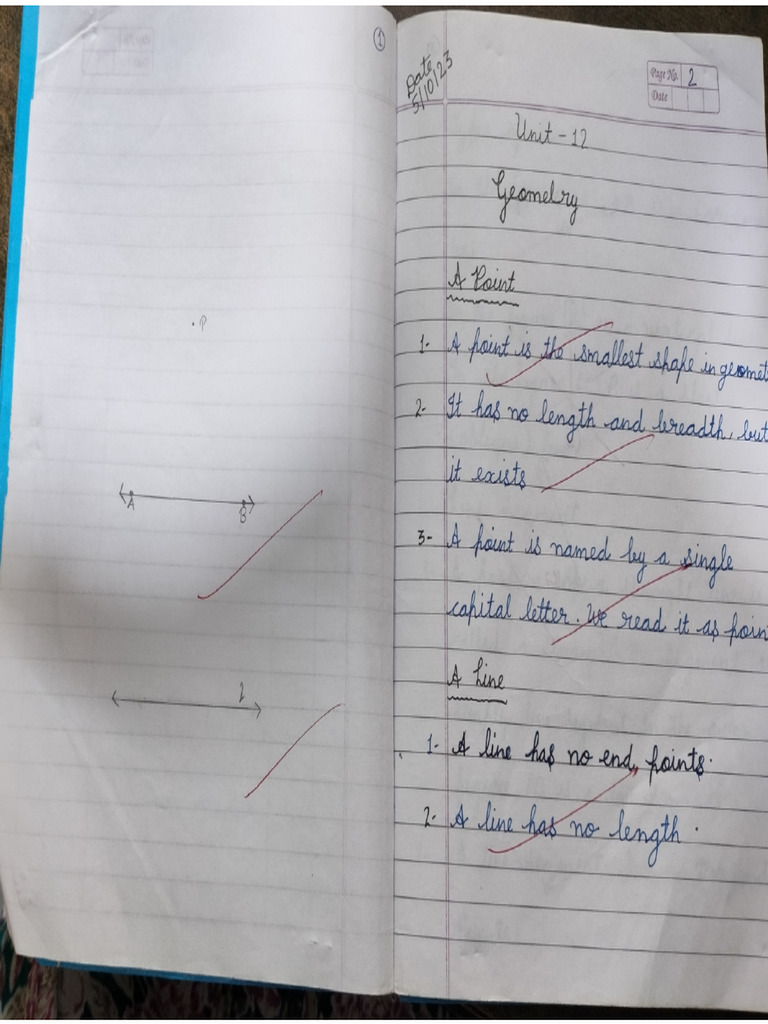 1
. P
A
B
l
Date
5/10/23
Page No. 2
Date
Unit - 12
Geometry
A Point
1- A point is the smallest shape in geomet
2- It has no length and breadth, but
it exists
3- A point is named by a single
capital letter. We read it as poin
A Line
1- A line has no end, points.
2- A line has no length.